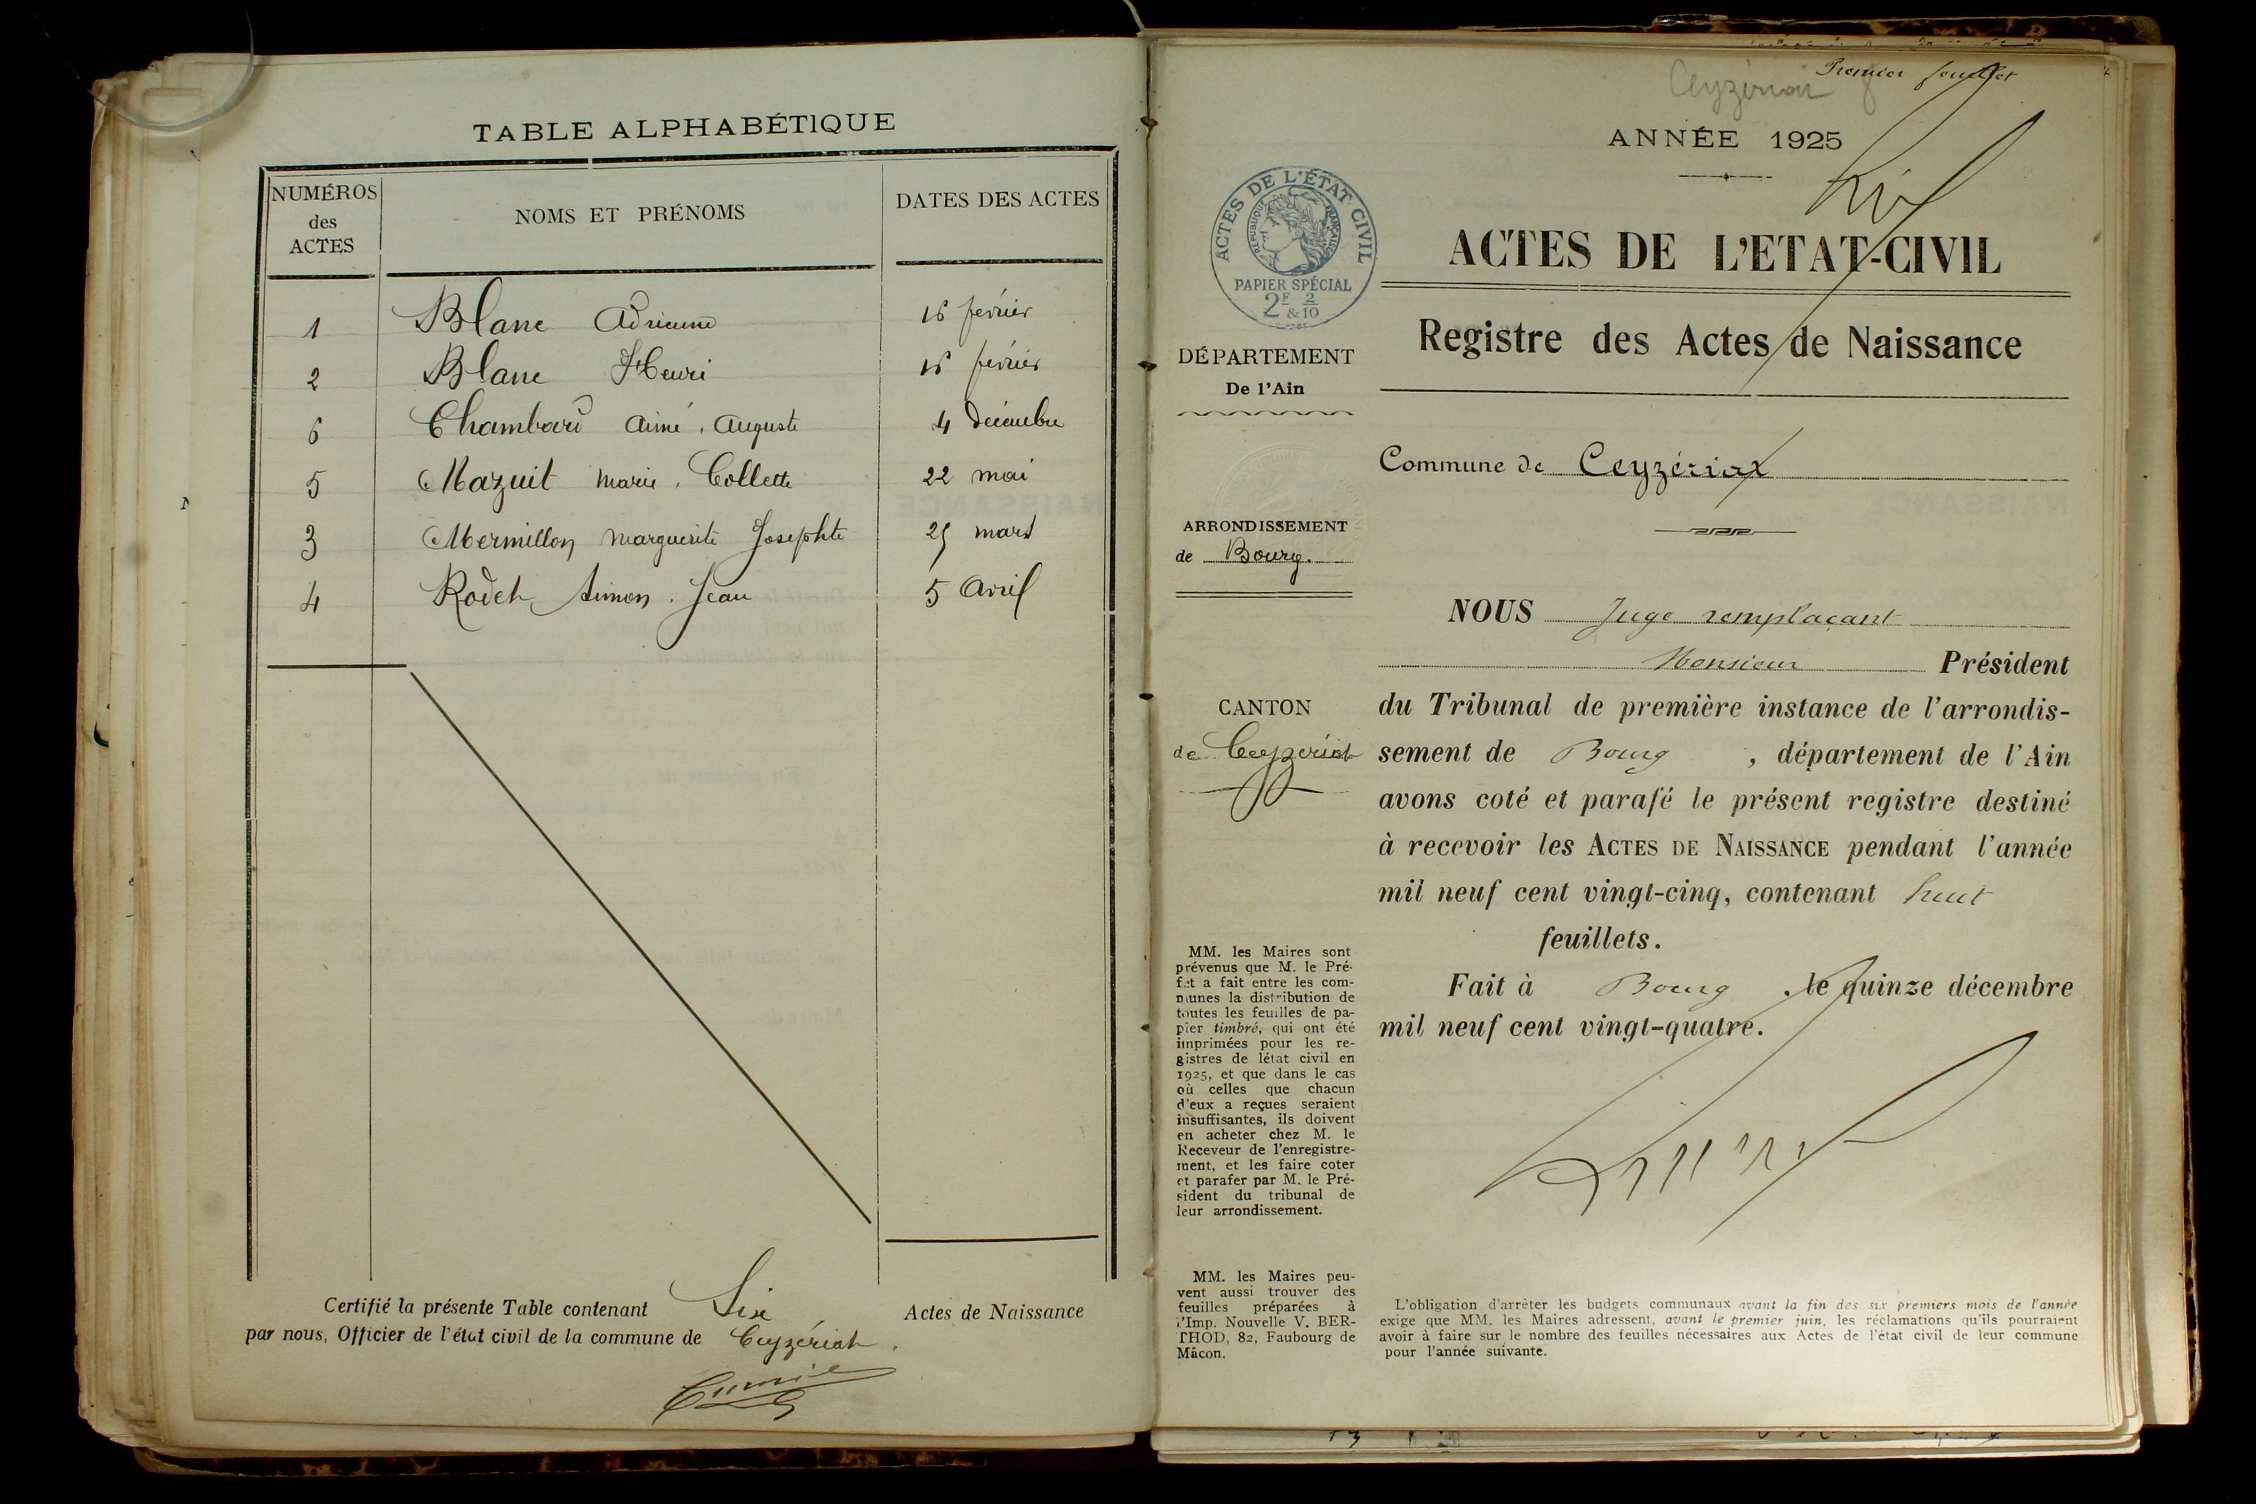 TABLE ALPHABÉTIQUE
NUMÉROS des ACTES
NOMS ET PRÉNOMS
DATES DES ACTES
1 Blanc Adrienne 16 février
2 Blanc Henri 16 février
6 Chambard Aimé, Auguste 4 décembre
5 Mazuit Marie, Collette 22 mai
3 Mermillon Marguerite Josephte 25 mars
4 Rodet Simon, Jean 5 Avril
Certifié la présente Table contenant Six Actes de Naissance
par nous, Officier de l'état civil de la commune de Ceyzériat.
Premier feuillet
Ceyzériat
ANNÉE 1925
ACTES DE L'ÉTAT CIVIL
RÉPUBLIQUE FRANÇAISE
PAPIER SPÉCIAL
2F 2
& 10
ACTES DE L'ETAT-CIVIL
Registre des Actes de Naissance
DÉPARTEMENT
De l'Ain
Commune de Ceyzériat
ARRONDISSEMENT
de Bourg.
CANTON
de Ceyzériat
NOUS Juge remplaçant
Monsieur Président
du Tribunal de première instance de l'arrondis-
sement de Bourg, département de l'Ain
avons coté et parafé le présent registre destiné
à recevoir les ACTES DE NAISSANCE pendant l'année
mil neuf cent vingt-cinq, contenant huit
feuillets.
Fait à Bourg, le quinze décembre
mil neuf cent vingt-quatre.
MM. les Maires sont
prévenus que M. le Pré-
fet a fait entre les com-
munes la distribution de
toutes les feuilles de pa-
pier timbré, qui ont été
imprimées pour les re-
gistres de létat civil en
1925, et que dans le cas
où celles que chacun
d'eux a reçues seraient
insuffisantes, ils doivent
en acheter chez M. le
Receveur de l'enregistre-
ment, et les faire coter
et parafer par M. le Pré-
sident du tribunal de
leur arrondissement.
MM. les Maires peu-
vent aussi trouver des
feuilles préparées à
l'Imp. Nouvelle V. BER-
THOD, 82, Faubourg de
Mâcon.
L'obligation d'arrêter les budgets communaux avant la fin des six premiers mois de l'année
exige que MM. les Maires adressent, avant le premier juin, les réclamations qu'ils pourraient
avoir à faire sur le nombre des feuilles nécessaires aux Actes de l'état civil de leur commune
pour l'année suivante.